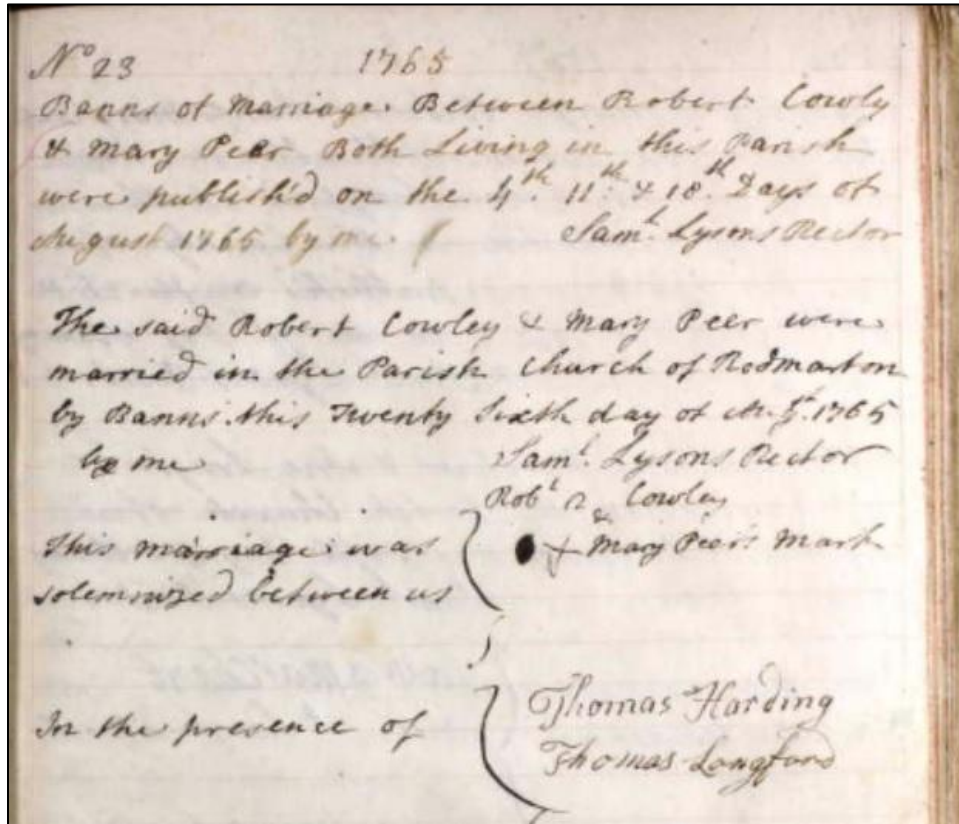 No 23 1765
Banns of Marriage Between Robert Cowly
& Mary Peer Both Living in this Parish
were publish'd on the 4th. 11th. & 18th. Days of
August 1765 by me Saml. Lysons Rector
The said Robert Cowley & Mary Peer were
married in the Parish Church of Rodmarton
by Banns this Twenty Sixth day of Augst. 1765
by me Saml. Lysons Rector
Robt Cowley
This marriage was & Mary Peer's Mark
solemnized between us
In the presence of Thomas Harding
Thomas Langford